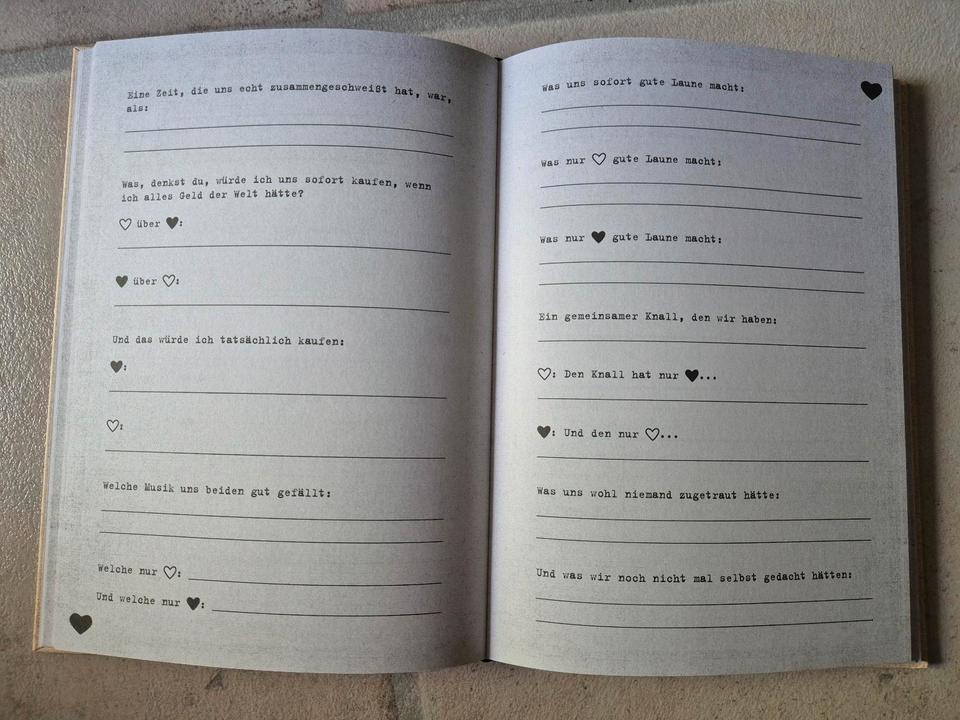 Eine Zeit, die uns echt zusammengeschweißt hat, war,
als:
Was, denkst du, würde ich uns sofort kaufen, wenn
ich alles Geld der Welt hätte?
♡ über ♥:
♥ über ♡:
Und das würde ich tatsächlich kaufen:
♥:
♡:
Welche Musik uns beiden gut gefällt:
Welche nur ♡:
Und welche nur ♥:
Was uns sofort gute Laune macht:
Was nur ♡ gute Laune macht:
Was nur ♥ gute Laune macht:
Ein gemeinsamer Knall, den wir haben:
♡: Den Knall hat nur ♥...
♥: Und den nur ♡...
Was uns wohl niemand zugetraut hätte:
Und was wir noch nicht mal selbst gedacht hätten: